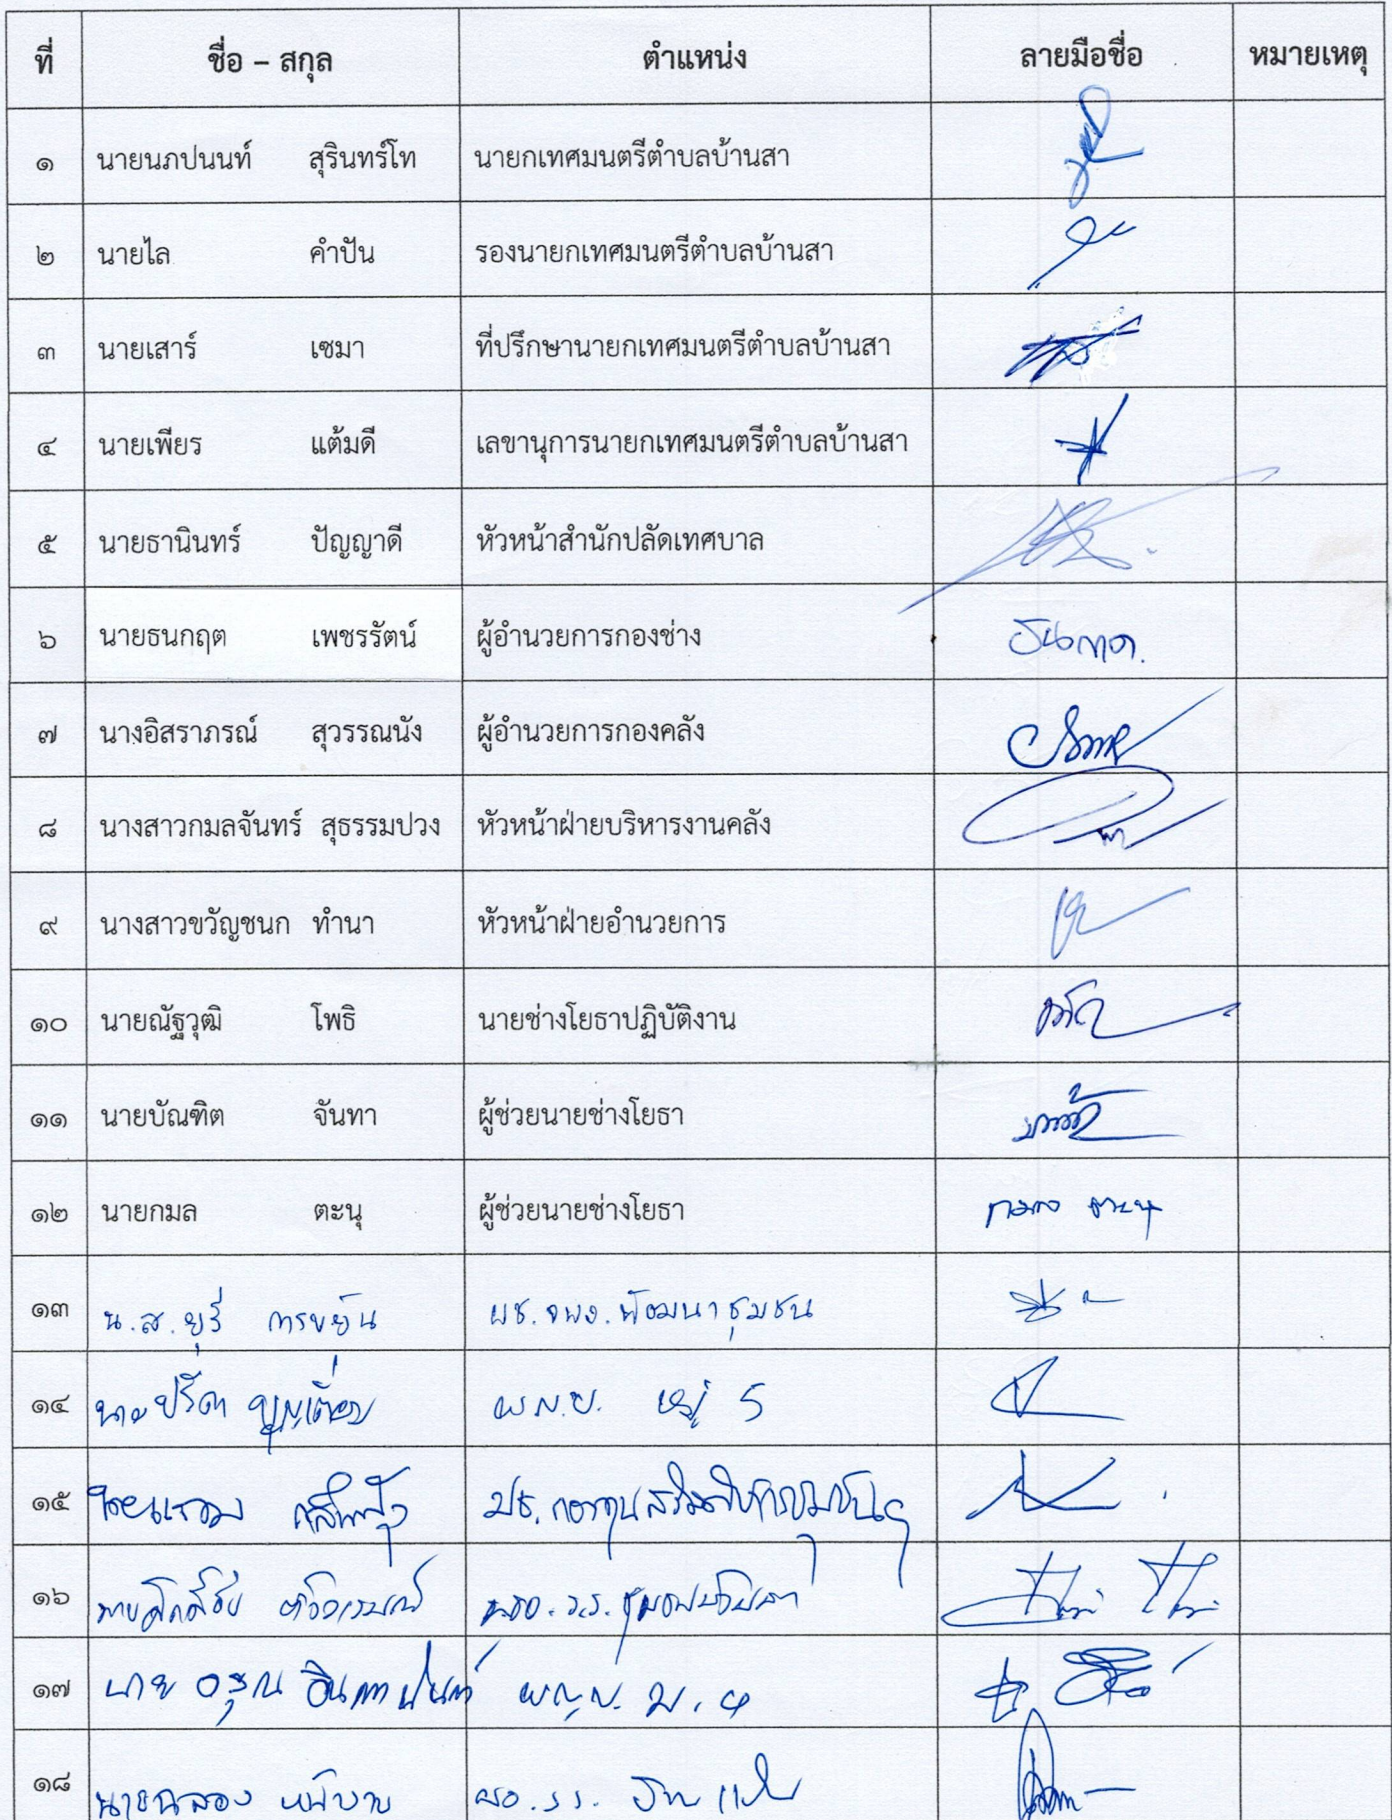 ที่ ชื่อ – สกุล ตำแหน่ง ลายมือชื่อ หมายเหตุ
๑ นายนภปนนท์ สุรินทร์โท นายกเทศมนตรีตำบลบ้านสา
๒ นายไล คำปัน รองนายกเทศมนตรีตำบลบ้านสา
๓ นายเสาร์ เซมา ที่ปรึกษานายกเทศมนตรีตำบลบ้านสา
๔ นายเพียร แต้มดี เลขานุการนายกเทศมนตรีตำบลบ้านสา
๕ นายธานินทร์ ปัญญาดี หัวหน้าสำนักปลัดเทศบาล
๖ นายธนกฤต เพชรรัตน์ ผู้อำนวยการกองช่าง ธนกฤต
๗ นางอิสราภรณ์ สุวรรณนัง ผู้อำนวยการกองคลัง
๘ นางสาวกมลจันทร์ สุธรรมปวง หัวหน้าฝ่ายบริหารงานคลัง
๙ นางสาวขวัญชนก ทำนา หัวหน้าฝ่ายอำนวยการ
๑๐ นายณัฐวุฒิ โพธิ นายช่างโยธาปฏิบัติงาน
๑๑ นายบัณฑิต จันทา ผู้ช่วยนายช่างโยธา
๑๒ นายกมล ตะนุ ผู้ช่วยนายช่างโยธา กมล ตะนุ
๑๓ น.ส. ยุรี การขยัน ผช.จพง.พัฒนาชุมชน
๑๔ นายปรีดา ผ.ญ.บ. หมู่ 5
๑๕
๑๖ นายศักดิ์ชัย ผอ.ร.ร.
๑๗ นาย อรุณ ผญบ. ม.4
๑๘ นายฉลอง ผอ.รร.